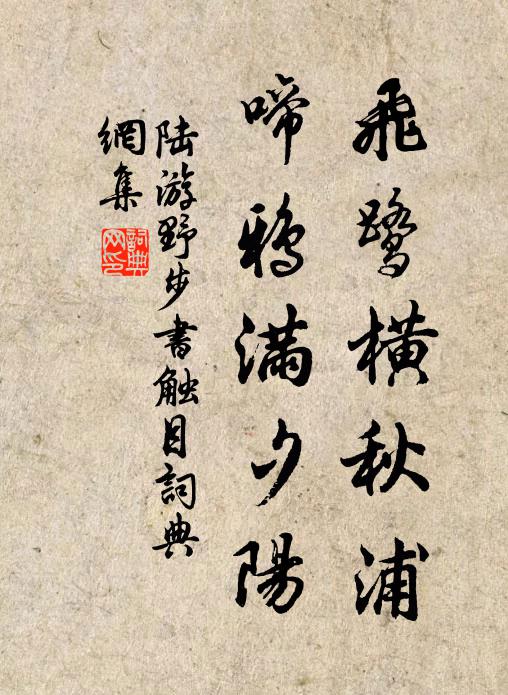 飛鷺橫秋浦
啼鴉滿夕陽
陆游野步書触目詞典
網集
詞典網印